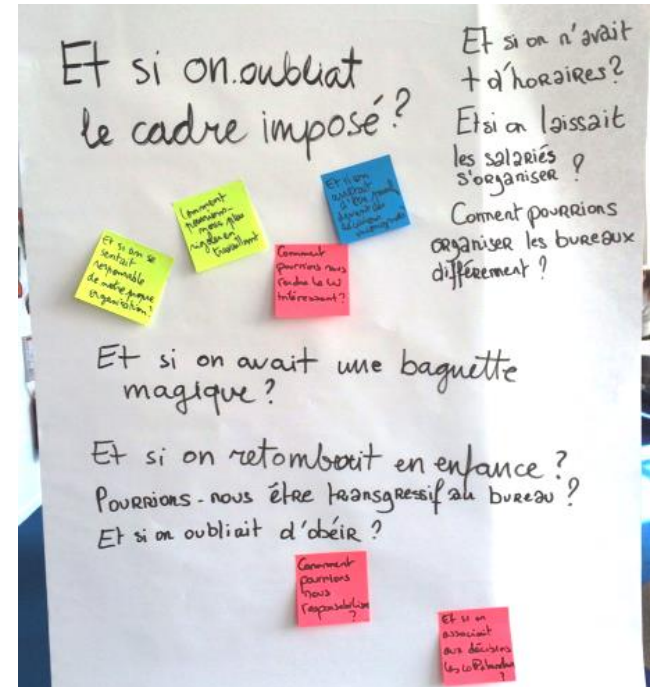 Et si on oubliat
le cadre imposé ?
Et si on n'avait
+ d'horaires ?
Et si on laissait
les salariés
s'organiser ?
Comment pourrions
organiser les bureaux
différement ?
Et si on se
sentait
responsable
de notre propre
organisation ?
Comment
pourrions-
nous plus
rigoler en
travaillant
Et si on
d'être
devant
décision
Comment
pourrions nous
rendre le W
intéressant ?
Et si on avait une baguette
magique ?
Et si on retomberait en enfance ?
Pourrions-nous être transgressif au bureau ?
Et si on oubliait d'obéir ?
Comment
pourrions
nous
responsabiliser
?
Et si on
associait
aux décisions
les
?